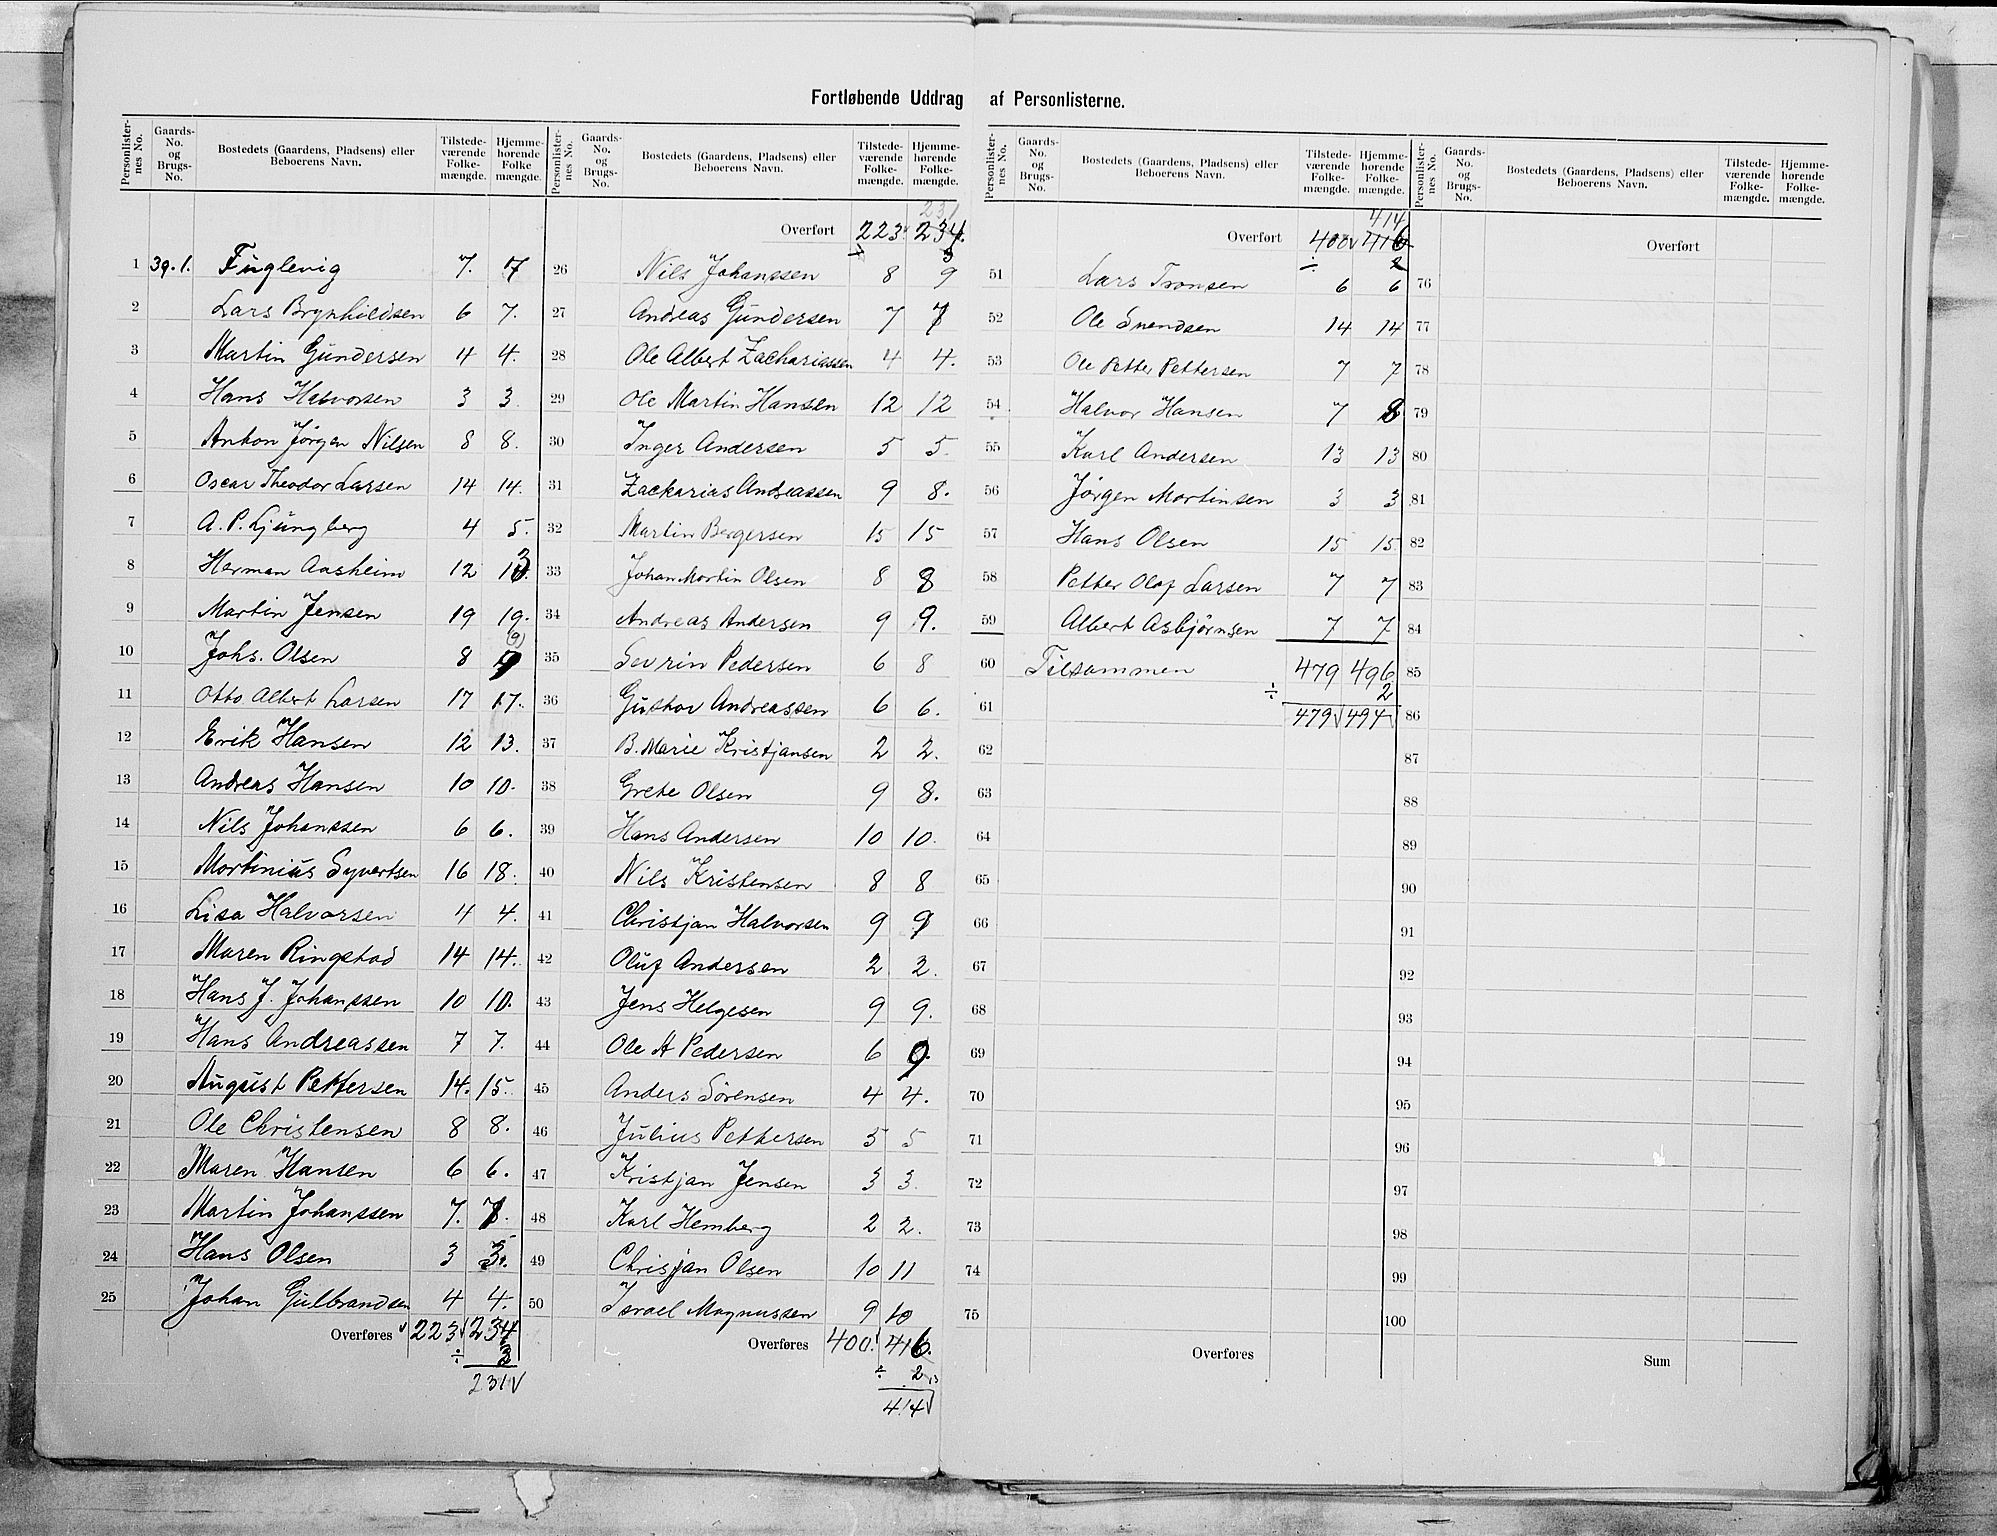 Fortløbende Uddrag af Personlisterne.
Personlister-nes No. Gaards-No. og Brugs-No. Bostedets (Gaardens, Pladsens) eller Beboerens Navn. Tilstede-værende Folke-mængde. Hjemme-hørende Folke mængde.
1 39.1. Fuglevig 7. 7
2 Lars Brynhildsen 6 7.
3 Martin Gundersen 4 4.
4 Hans Halvorsen 3 3
5 Anton Jörgen Nilsen 8 8.
6 Oscar Theodor Larsen 14 14.
7 A. P. Ljungberg 4 5.
8 Herman Aasheim 12
9 Martin Jensen 19 19.
10 Johs. Olsen 8 9 (9)
11 Otto Albert Larsen 17 17.
12 Erik Hansen 12 13.
13 Andreas Hansen 10 10.
14 Nils Johanssen 6 6.
15 Martinius Syvertsen 16 18.
16 Lisa Halvorsen 4 4.
17 Maren Ringstad 14 14.
18 Hans J. Johanssen 10 10.
19 Hans Andreassen 7 7.
20 August Pettersen 14. 15.
21 Ole Christensen 8 8.
22 Maren Hansen 6 6.
23 Martin Johanssen 7.
24 Hans Olsen 3 3.
25 Johan Gulbrandsen 4 4.
Overføres 223 234
÷ 3
231
Personlister-nes No. Gaards-No. og Brugs-No. Bostedets (Gaardens, Pladsens) eller Beboerens Navn. Tilstede-værende Folke-mængde. Hjemme-hørende Folke-mængde.
231
Overført 223 234.
÷ 3
26 Nils Johanssen 8 9
27 Andreas Gundersen 7 7
28 Ole Albert Zachariassen 4 4.
29 Ole Martin Hansen 12 12
30 Inger Andersen 5 5.
31 Zackarias Andreassen 9 8.
32 Martin Bergersen 15 15
33 Johan Martin Olsen 8 8
34 Andreas Andersen 9 9.
35 Sevrin Pedersen 6 8
36 Gustav Andreassen 6 6.
37 B. Marie Kristjansen 2 2.
38 Grete Olsen 9 8.
39 Hans Andersen 10 10.
40 Nils Kristensen 8 8
41 Christjan Halvorsen 9 9
42 Oluf Andersen 2 2.
43 Jens Helgesen 9 9.
44 Ole A Pedersen 6 9.
45 Anders Sörensen 4 4.
46 Julius Pettersen 5 5
47 Kristjan Jensen 3 3.
48 Karl Hemberg 2 2.
49 Chrisjan Olsen 10 11
50 Israel Magnussen 9 10
Overføres 400 416.
÷ 2
414
Personlister-nes No. Gaards-No. og Brugs-No. Bostedets (Gaardens, Pladsens) eller Beboerens Navn. Tilstede-værende Folke-mængde. Hjemme-hørende Folke-mængde.
414
Overført 400 416
÷ 2
51 Lars Tronsen 6 6
52 Ole Svendsen 14 14
53 Ole Petter Pettersen 7 7
54 Halvor Hansen 7 8
55 Karl Andersen 13 13
56 Jörgen Martinsen 3 3
57 Hans Olsen 15 15
58 Petter Olaf Larsen 7 7
59 Albert Asbjørnsen 7 7
60 Tilsammen 479 496
÷ 2
61 479 494
62
63
64
65
66
67
68
69
70
71
72
73
74
75
Overføres
Personlister-nes No. Gaards-No. og Brugs-No. Bostedets (Gaardens, Pladsens) eller Beboerens Navn. Tilstede-værende Folke-mængde. Hjemme-hørende Folke-mængde.
Overført
76
77
78
79
80
81
82
83
84
85
86
87
88
89
90
91
92
93
94
95
96
97
98
99
100
Sum